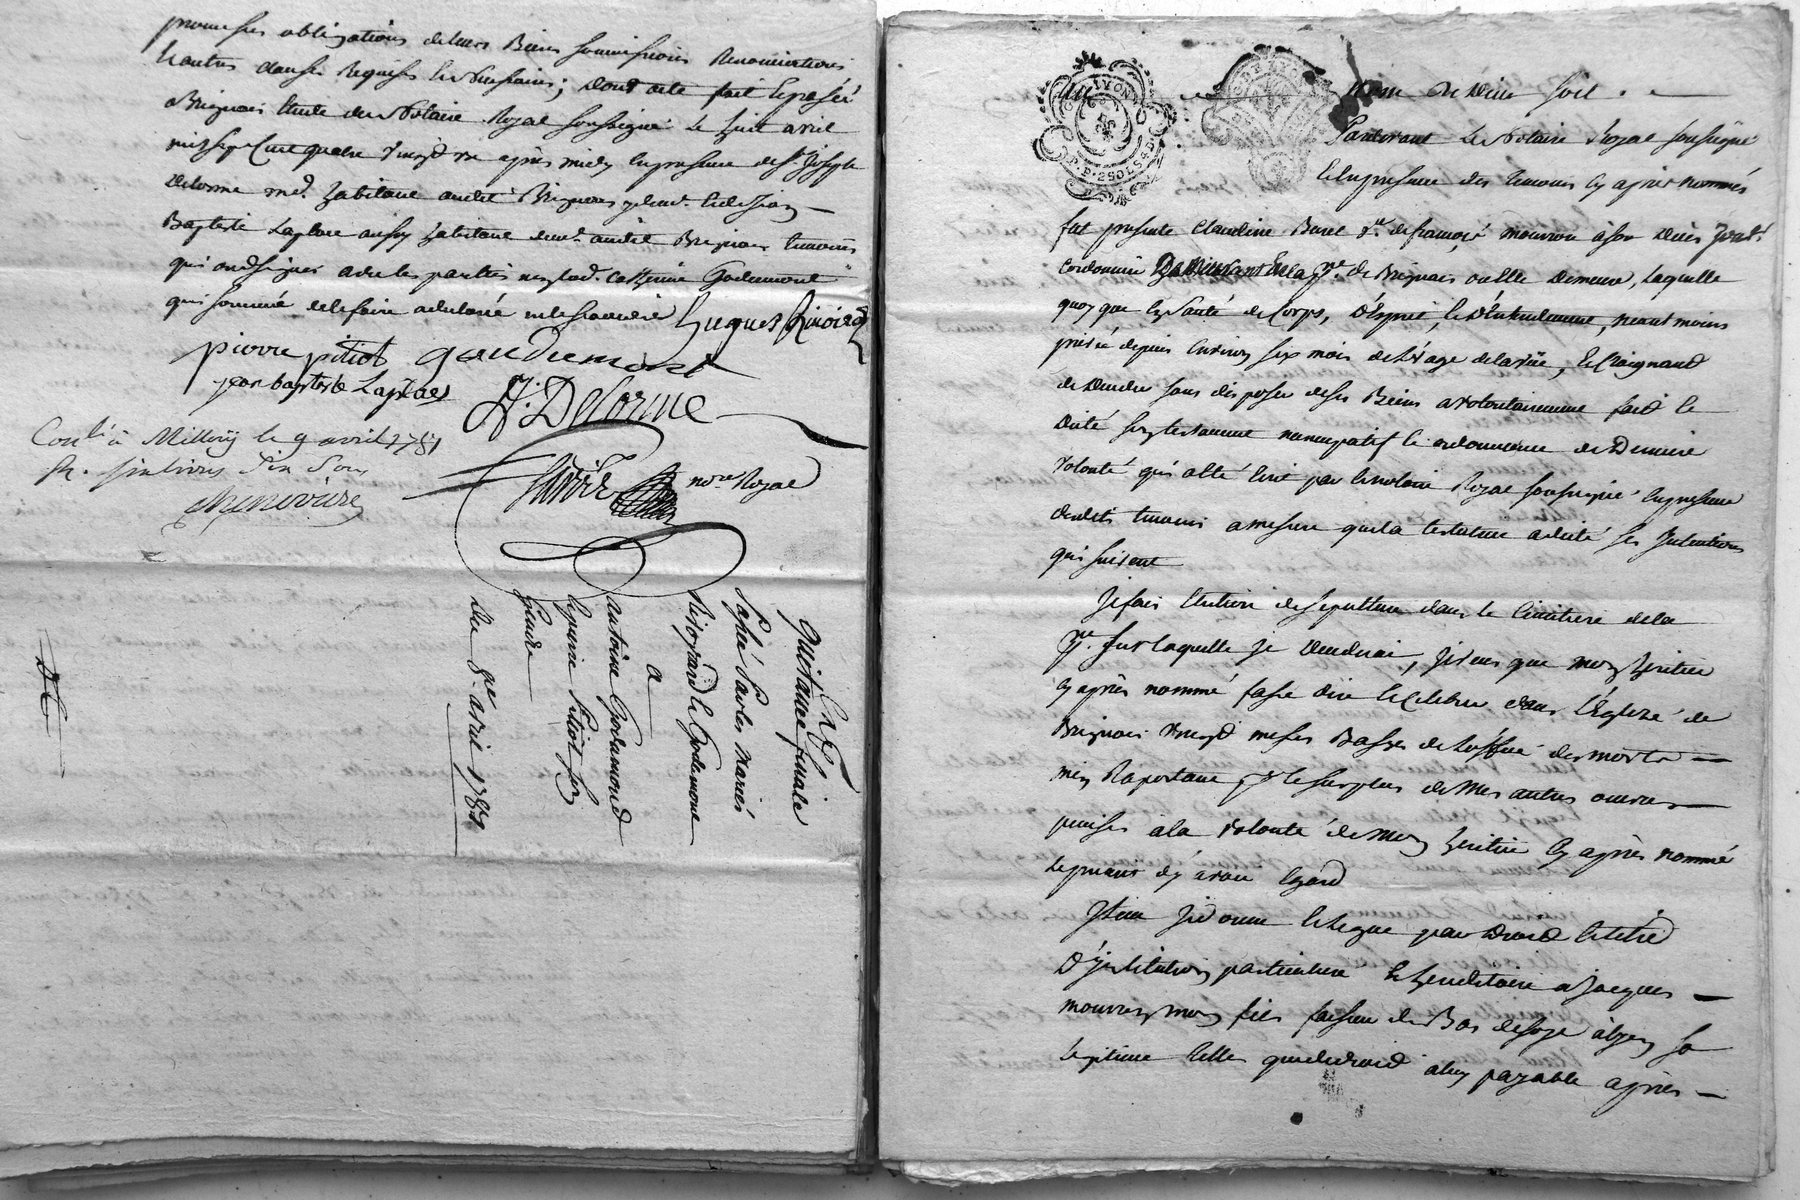 promesses obligations de leurs Biens soumissions Renonciations
& autres clauses Requises & necessaires; dont acte fait & passé à
Brignais Etude du Notaire Royal soussigné le huit avril
mil sept cent quatre vingt un après midy en presence de sr. Joseph
Delorme md. habitant audit Brignais & de Jean
Baptiste Laplace aussy habitant audit Brignais temoins
qui ont signés avec les parties non lad. Catherine Godemont
qui sommé de le faire a declaré ne le scavoir
hugues
pierre pitiot gaudemont
jean baptiste Laplace
J. Delorme
Conlé à Millery le 9 avril 1781
R. six livres dix sous
nore. Royal
Quitance finale
mariés
à
Antoine Godemond
& pierre Pitiot son
Gendre
Du 8e. avril 1781
GEN. LYON
2 SOLS 4 D
Au Nom de Dieu soit
Pardevant Le Notaire Royal soussigné
& en presence des temoins cy après nommés
fut presente Claudine Buret ve. de françois mouron à son Deces
cordonnier en la pse. de Brignais ou elle demeure, laquelle
quoy que en santé de Corps, d'esprit, & d'Entendement, neant moins
privée depuis environ six mois de l'usage de la vüe, & craignant
de deceder sans disposer de ses Biens a volontairement fait &
dicté son testament nuncupatif & ordonnance de Derniere
volonté qui a été Ecrit par le notaire Royal soussigné en presence
desdits temoins a mesure que la testatrice a dicté ses Intentions
qui suivent
Je fais Election de sepulture dans le Cimitiere de la
pse. sur laquelle je decederai, je veux que mon heritier
cy après nommé fasse dire & celebrer dans l'Eglise de
Brignais vingt messes Basses de l'office des morts
m'en Raportant pr. le surplus de mes autres œuvres
pieuses à la volonté de mon heritier cy après nommé
le priant d'y avoir Egard
Item je donne & legue par droit & titre
d'Institution particuliere & hereditaire a Jacques
mouron mon fils faiseur de Bas de soye à Lyon sa
legitime telle que de droit a luy payable après